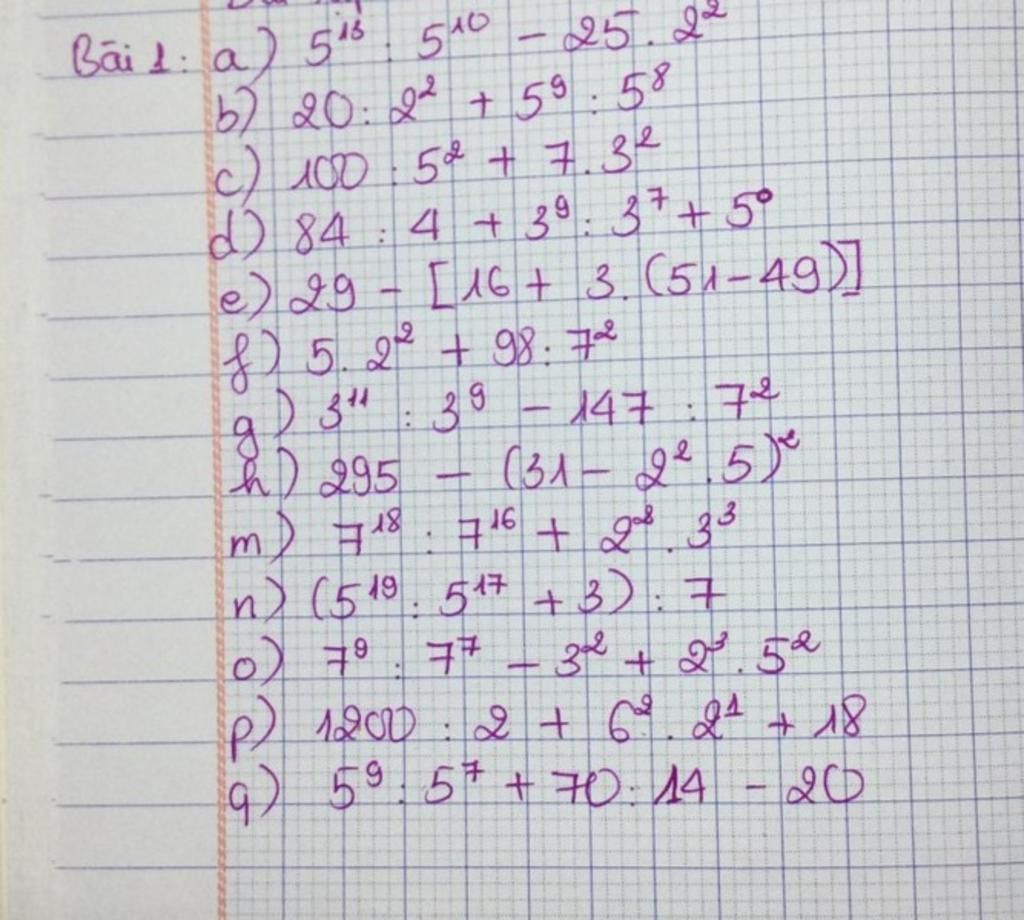 Bài 1: a) 5¹³ : 5¹⁰ - 25 . 2²
b) 20 : 2² + 5⁹ : 5⁸
c) 100 : 5² + 7 . 3²
d) 84 : 4 + 3⁹ : 3⁷ + 5⁰
e) 29 - [16 + 3 . (51 - 49)]
f) 5 . 2² + 98 : 7²
g) 3¹¹ : 3⁹ - 147 : 7²
h) 295 - (31 - 2² . 5)²
m) 7¹⁸ : 7¹⁶ + 2² . 3³
n) (5¹⁹ : 5¹⁷ + 3) : 7
o) 7⁹ : 7⁷ - 3² + 2³ . 5²
p) 1200 : 2 + 6² . 2¹ + 18
q) 5⁹ : 5⁷ + 70 : 14 - 20